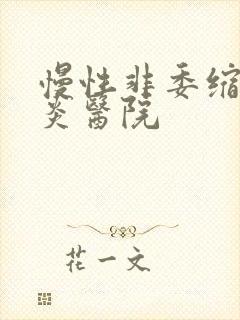 慢性非委缩
炎醫院
花一文